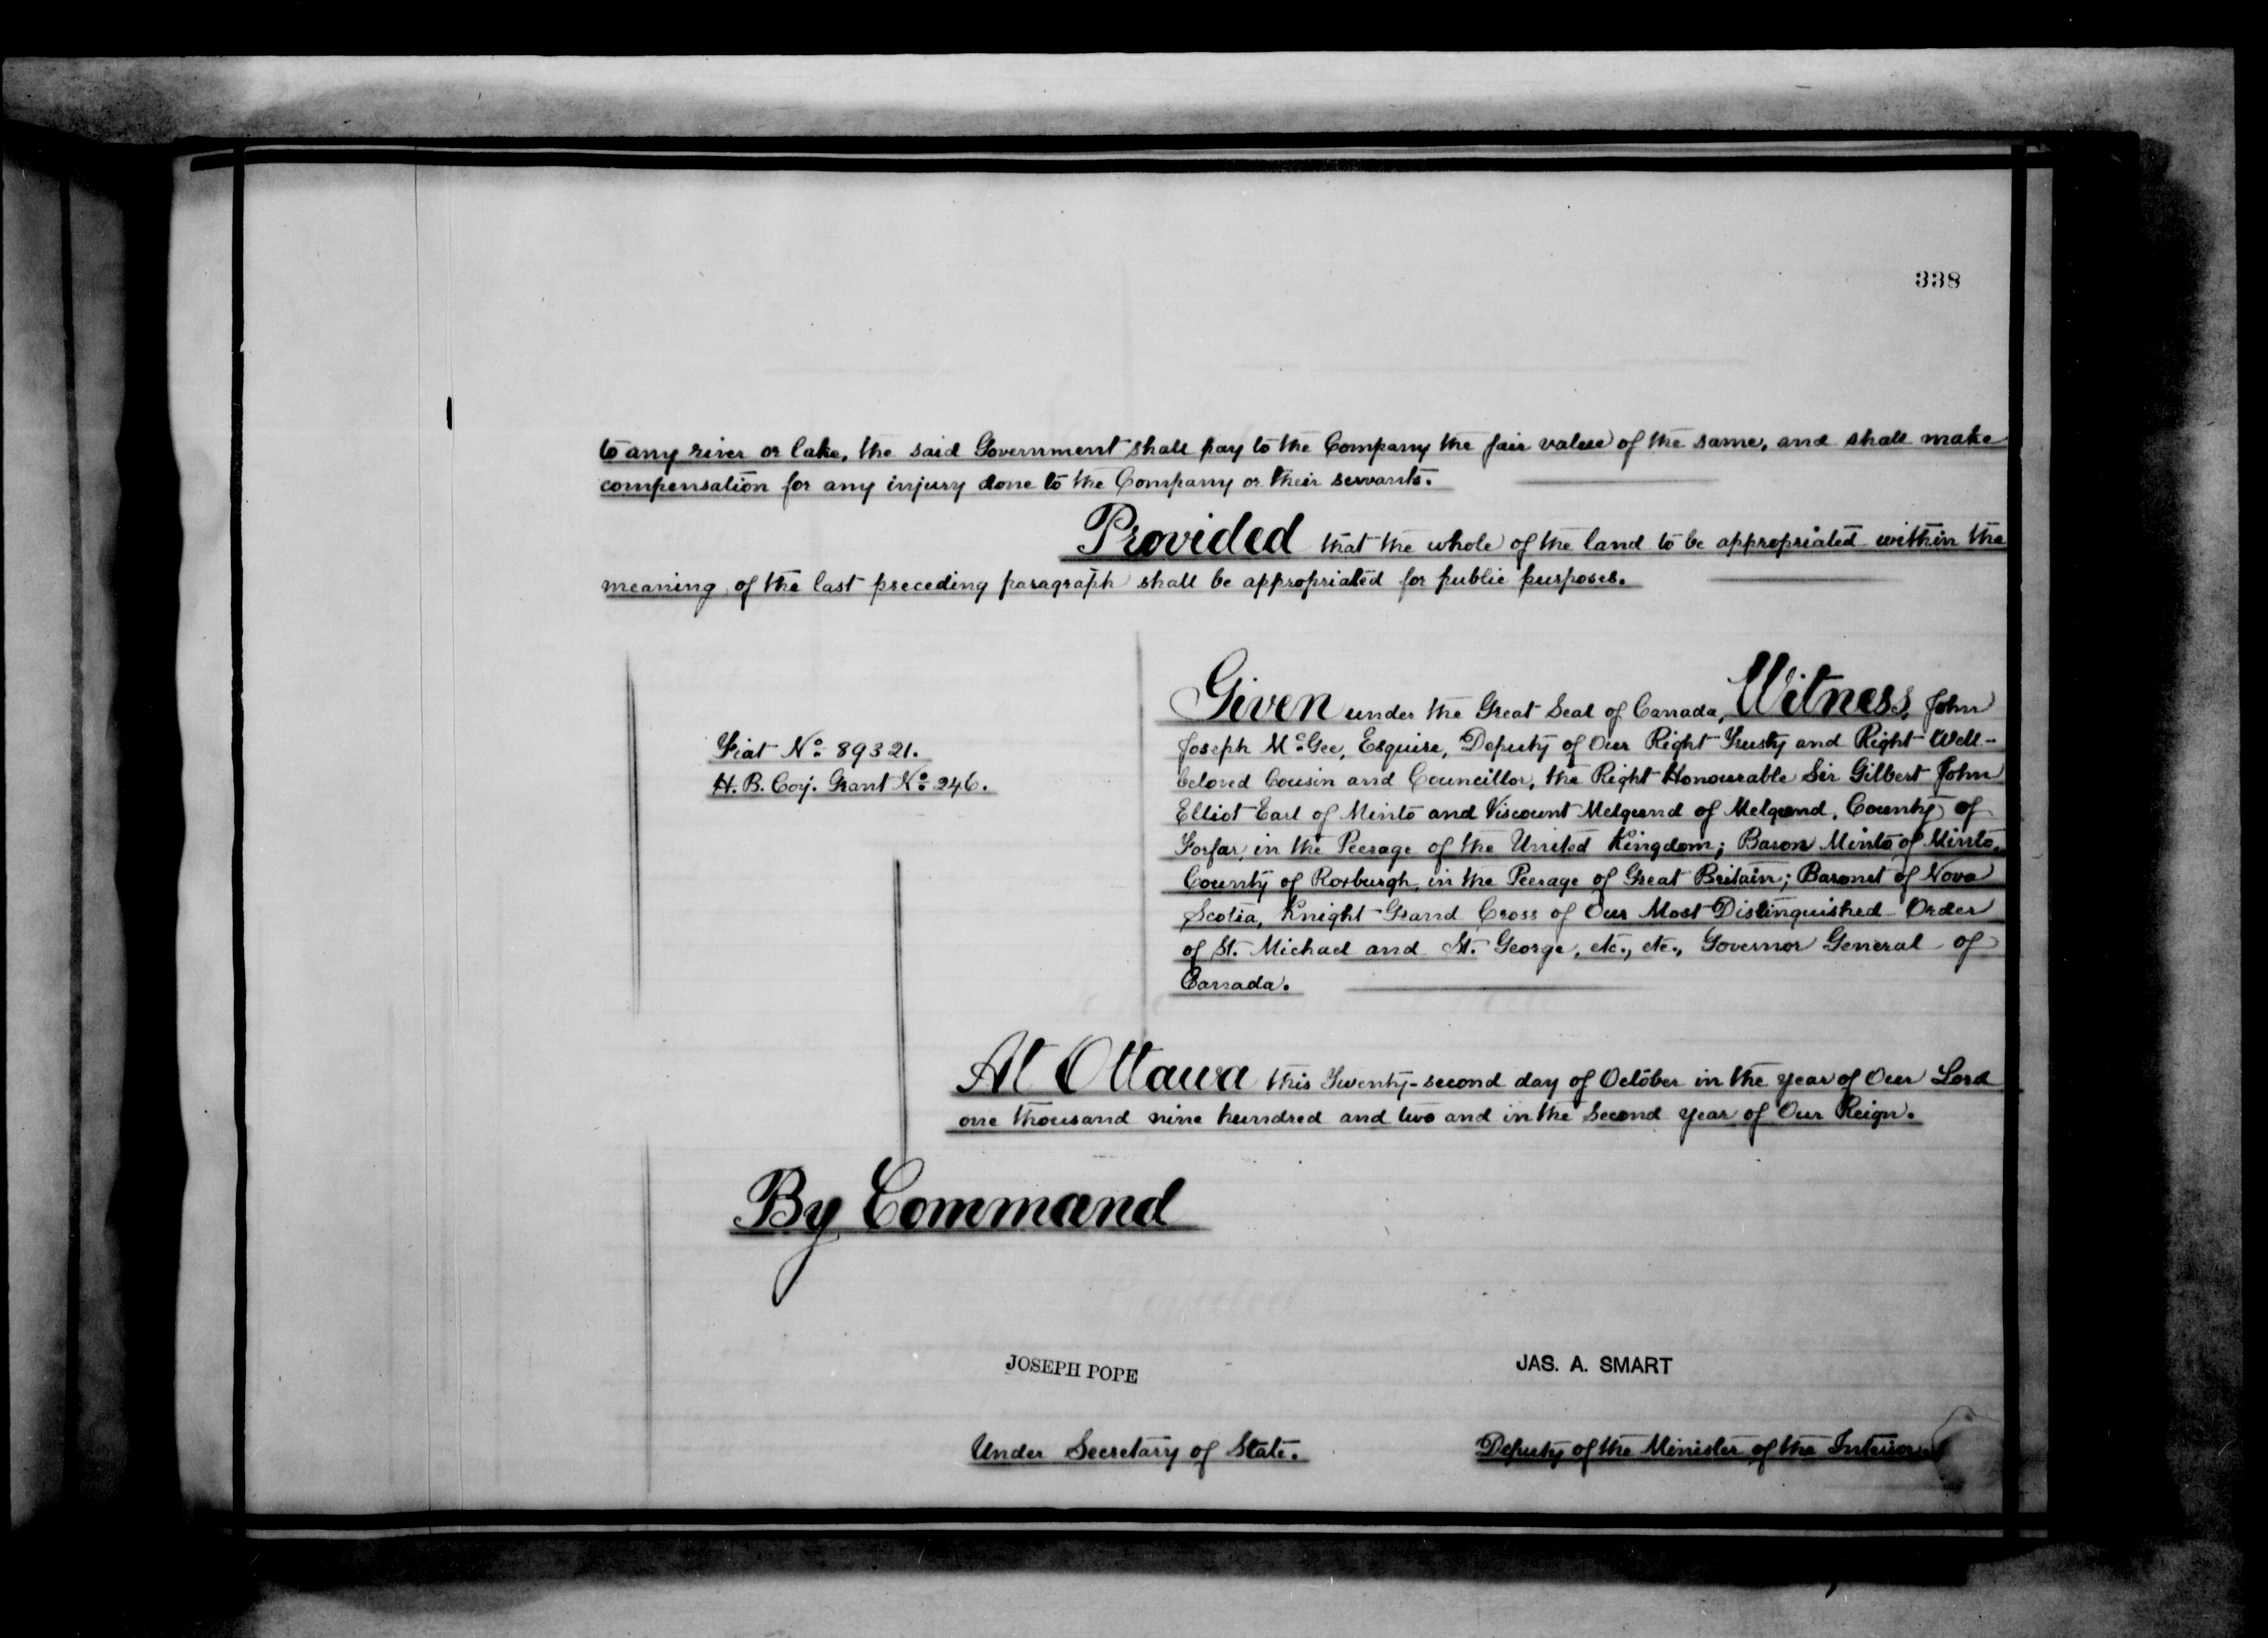 338
to any river or lake, the said Government shall pay to the Company the fair value of the same, and shall make
compensation for any injury done to the Company or their servants.
Provided that the whole of the land to be appropriated within the
meaning of the last preceding paragraph shall be appropriated for public purposes.
Given under the Great Seal of Canada, Witness, John
Joseph McGee, Esquire, Deputy of Our Right Trusty and Right Well-
beloved Cousin and Councillor, the Right Honourable Sir Gilbert John
Elliot Earl of Minto and Viscount Melgund of Melgund, County of
Forfar, in the Peerage of the United Kingdom; Baron Minto of Minto,
County of Roxburgh, in the Peerage of Great Britain; Baronet of Nova
Scotia, Knight Grand Cross of Our Most Distinguished Order
of St. Michael and St. George, etc., etc., Governor General of
Canada.
Fiat No. 89321.
H. B. Coy. Grant No. 246.
At Ottawa this Twenty-second day of October in the year of Our Lord
one thousand nine hundred and two and in the Second year of Our Reign.
By Command
JOSEPH POPE
JAS. A. SMART
Under Secretary of State.
Deputy of the Minister of the Interior.